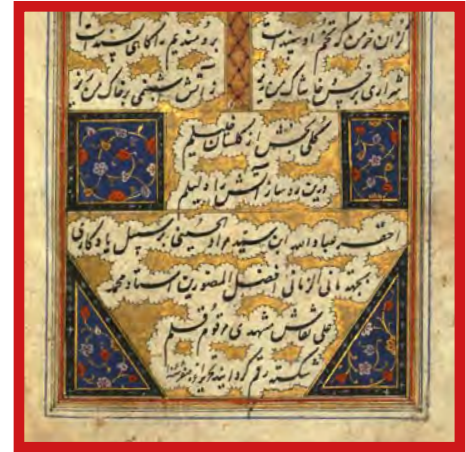 کزان خرمن که تخم او سپند است
برومندیم را کاهی پسند است
شراری بر خس و خاشاک من ریز
ز آتش شبنمی بر خاک من ریز
گلی بخش از گلستان خلیلم
درین ره ساز آتش را دلیلم
احقر عباد الله ابن سید الحسینی بر سبیل یادگاری
بجهة مانی الزمانی افضل المصورین استاد محمد
علی نقاش مشهدی مرقوم قلم
شکسته رقم گردانید